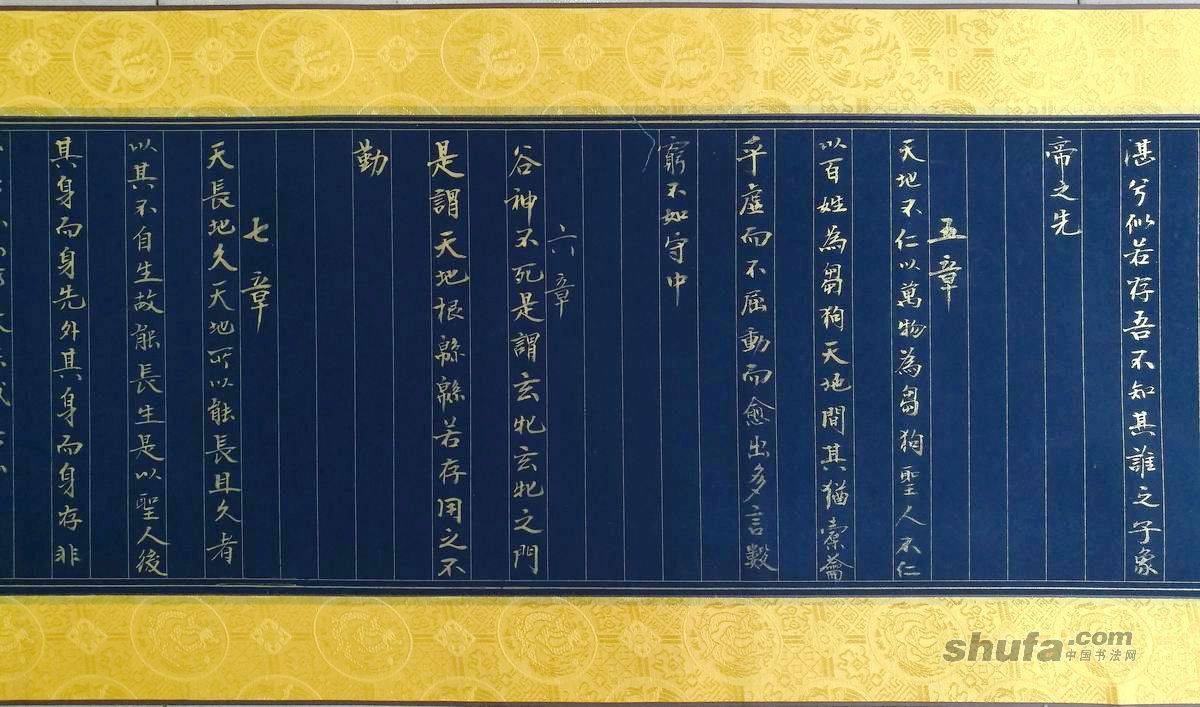 湛兮似若存吾不知其誰之子象
帝之先
五章
天地不仁以萬物為芻狗聖人不仁
以百姓為芻狗天地間其猶橐籥
乎虛而不屈動而愈出多言數
窮不如守中
六章
谷神不死是謂玄牝玄牝之門
是謂天地根緜緜若存用之不
勤
七章
天長地久天地所以能長且久者
以其不自生故能長生是以聖人後
其身而身先外其身而身存非
shufa.com
中国书法网